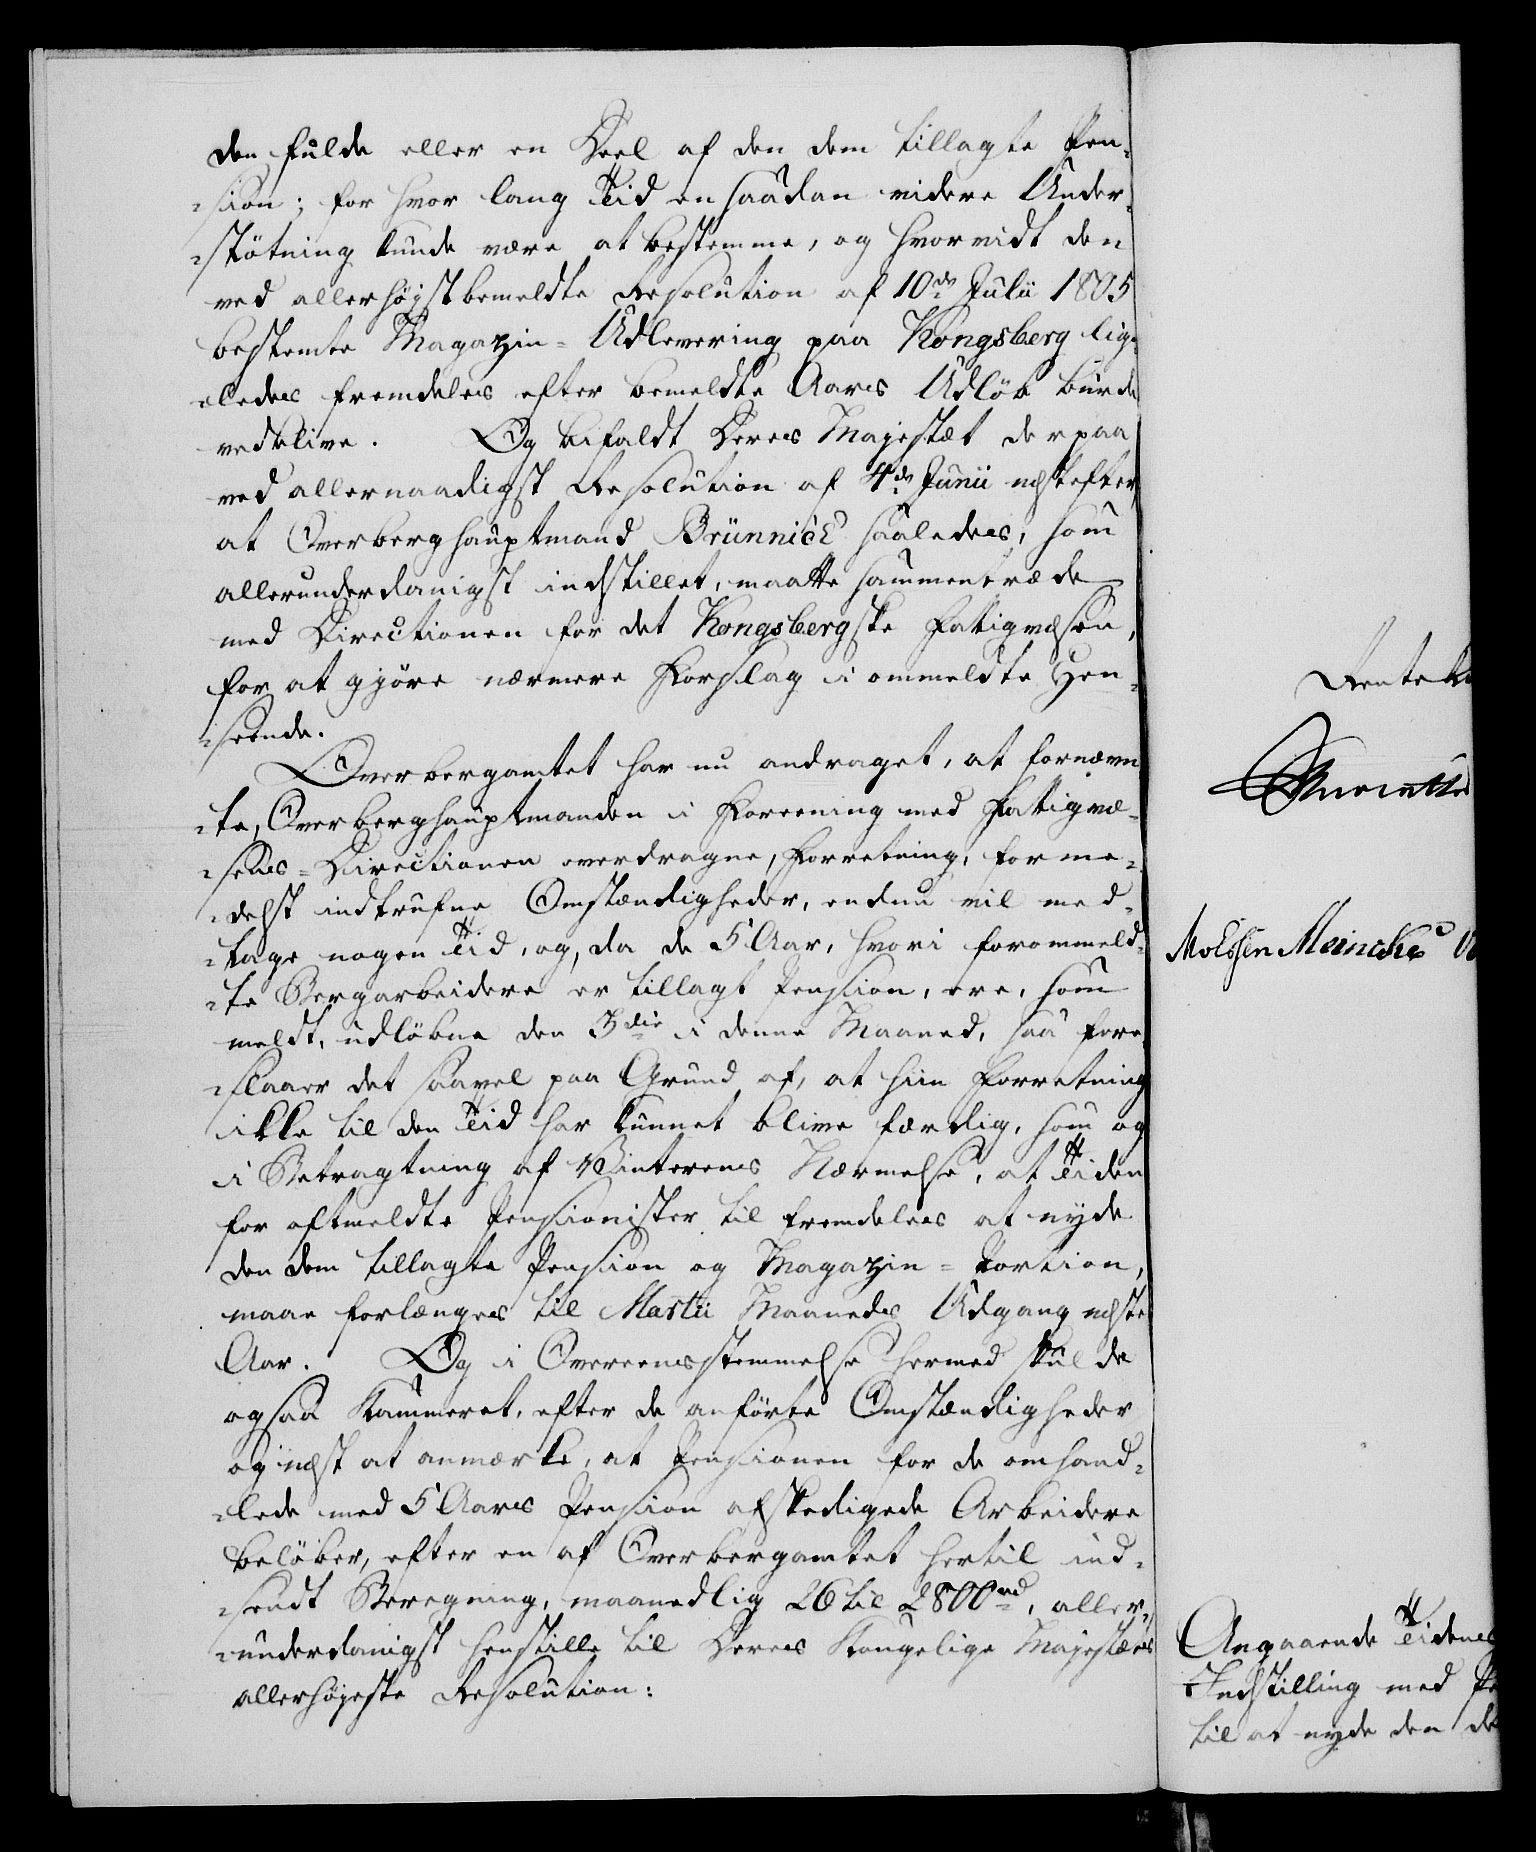 den fulde eller en Deel af den dem tillagte Pen-
-sion; for hvor lang Tid en saadan videre Under-
-støtning kunde være at bestemme, og hvorvidt den
ved allerhøjstbemeldte Resolution af 10de Julii 1805
bestemte Magazin-Udlevering paa Kongsberg lige-
-ledes fremdeles efter bemeldte Aars Udløb burde
vedblive. Og bifaldt Deres Majestæt derpaa
ved allernaadigst Resolution af 4de Junii næstefter,
at Overberghauptmand Brünnich saaledes, som
allerunderdanigst indstillet, maatte sammentræde
med Directionen for det Kongsbergske Fatigvæsen,
for at gjøre nærmere Forslag i ommeldte Hen-
-seende.
Overbergamtet har nu andraget, at fornævn-
-te, Overberghauptmanden i Foreening med Fatigvæ-
-sens-Directionen overdragne, Forretning, forme-
-delst indtrufne Omstændigheder, endnu vil med-
-tage nogen Tid, og, da de 5 Aar, hvori forommeld-
-te Bergarbeidere er tillagt Pension, ere, som
meldt, udløbne den 3die i denne Maaned, saa fore-
-slaaer det saavel paa Grund af, at hiin Forretning
ikke til den Tid har kunnet blive færdig, som og
i Betragtning af Vinterens Nærmelse, at Tiden
for oftmeldte Pensionister til fremdeles at nyde
den dem tillagte Pension og Magazin-Portion,
maae forlænges til Martii Maaneds Udgang næste
Aar. Og i Overeensstemmelse hermed skulde
ogsaa Kammeret, efter de anførte Omstændigheder
og næst at anmærke, at Pensionen for de omhand-
-lede med 5 Aars Pension afskedigede Arbeidere
beløber, efter en af Overbergamtet hertil ind-
-sendt Beregning, maanedlig 26 til 2800 rd, aller-
-underdanigst henstille til Deres Kongelige Majestæts
allerhøjeste Resolution:
Renteka
Meincke
Angaaende Tidens
Indstilling med Pe
til at nyde den de